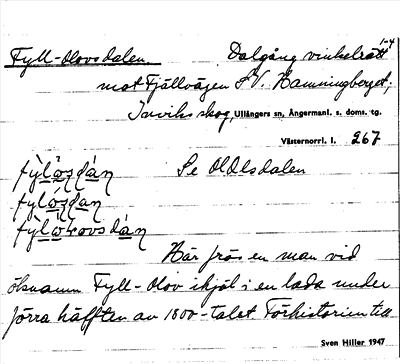 1-4
Fyll-Olovsdalen Dalgång vinkelrätt
mot Fjällvägen S.V. Hamningberget,
Inviks skog, Ullångers sn, Ångermanl. s. doms. tg.
Västernorrl. l. 267
fỳlösdán Se OlOlsdalen
fylösdan
fỳlökovsdán
Här frös en man vid
öknamn Fyll-Olov ihjäl i en lada under
förra hälften av 1800-talet Förhistorien till
Sven Hiller 1947